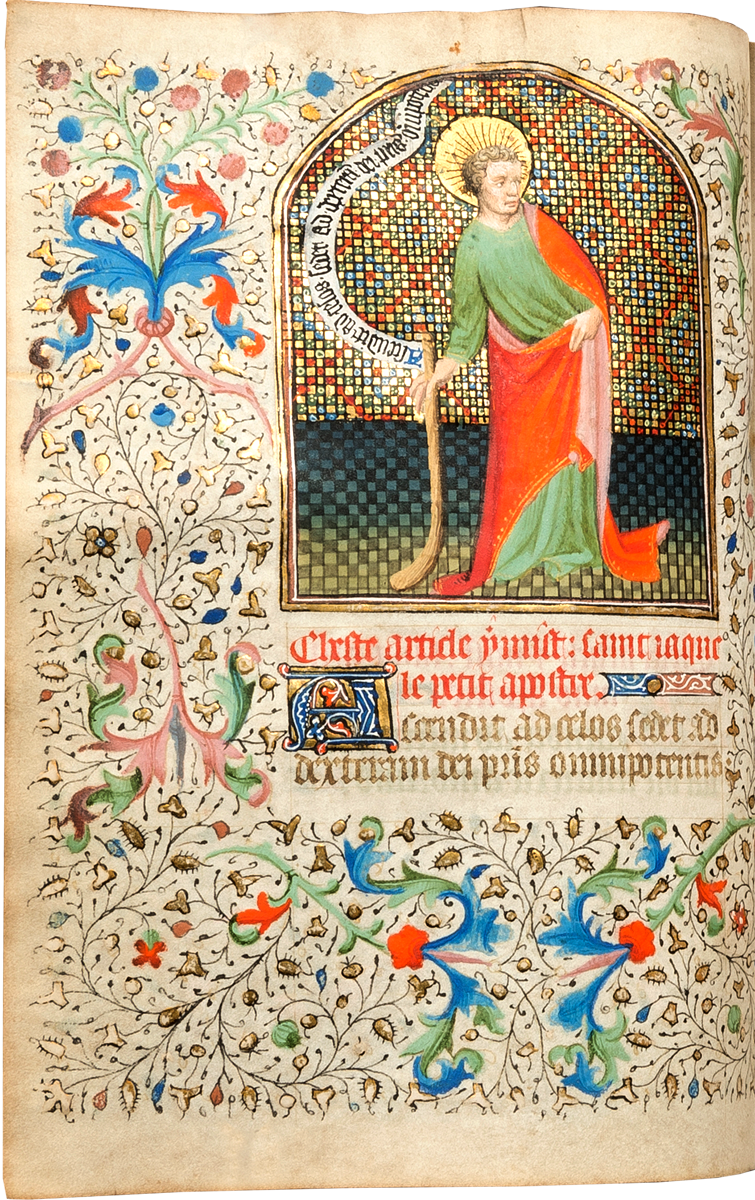 Ascendit ad celos sedet ad dexteram dei patris omnipotentis
Cleste article y mist : saint iaque
le petit apostre.
Ascendit ad celos sedet ad
dexteram dei pr̃is omnipotentis